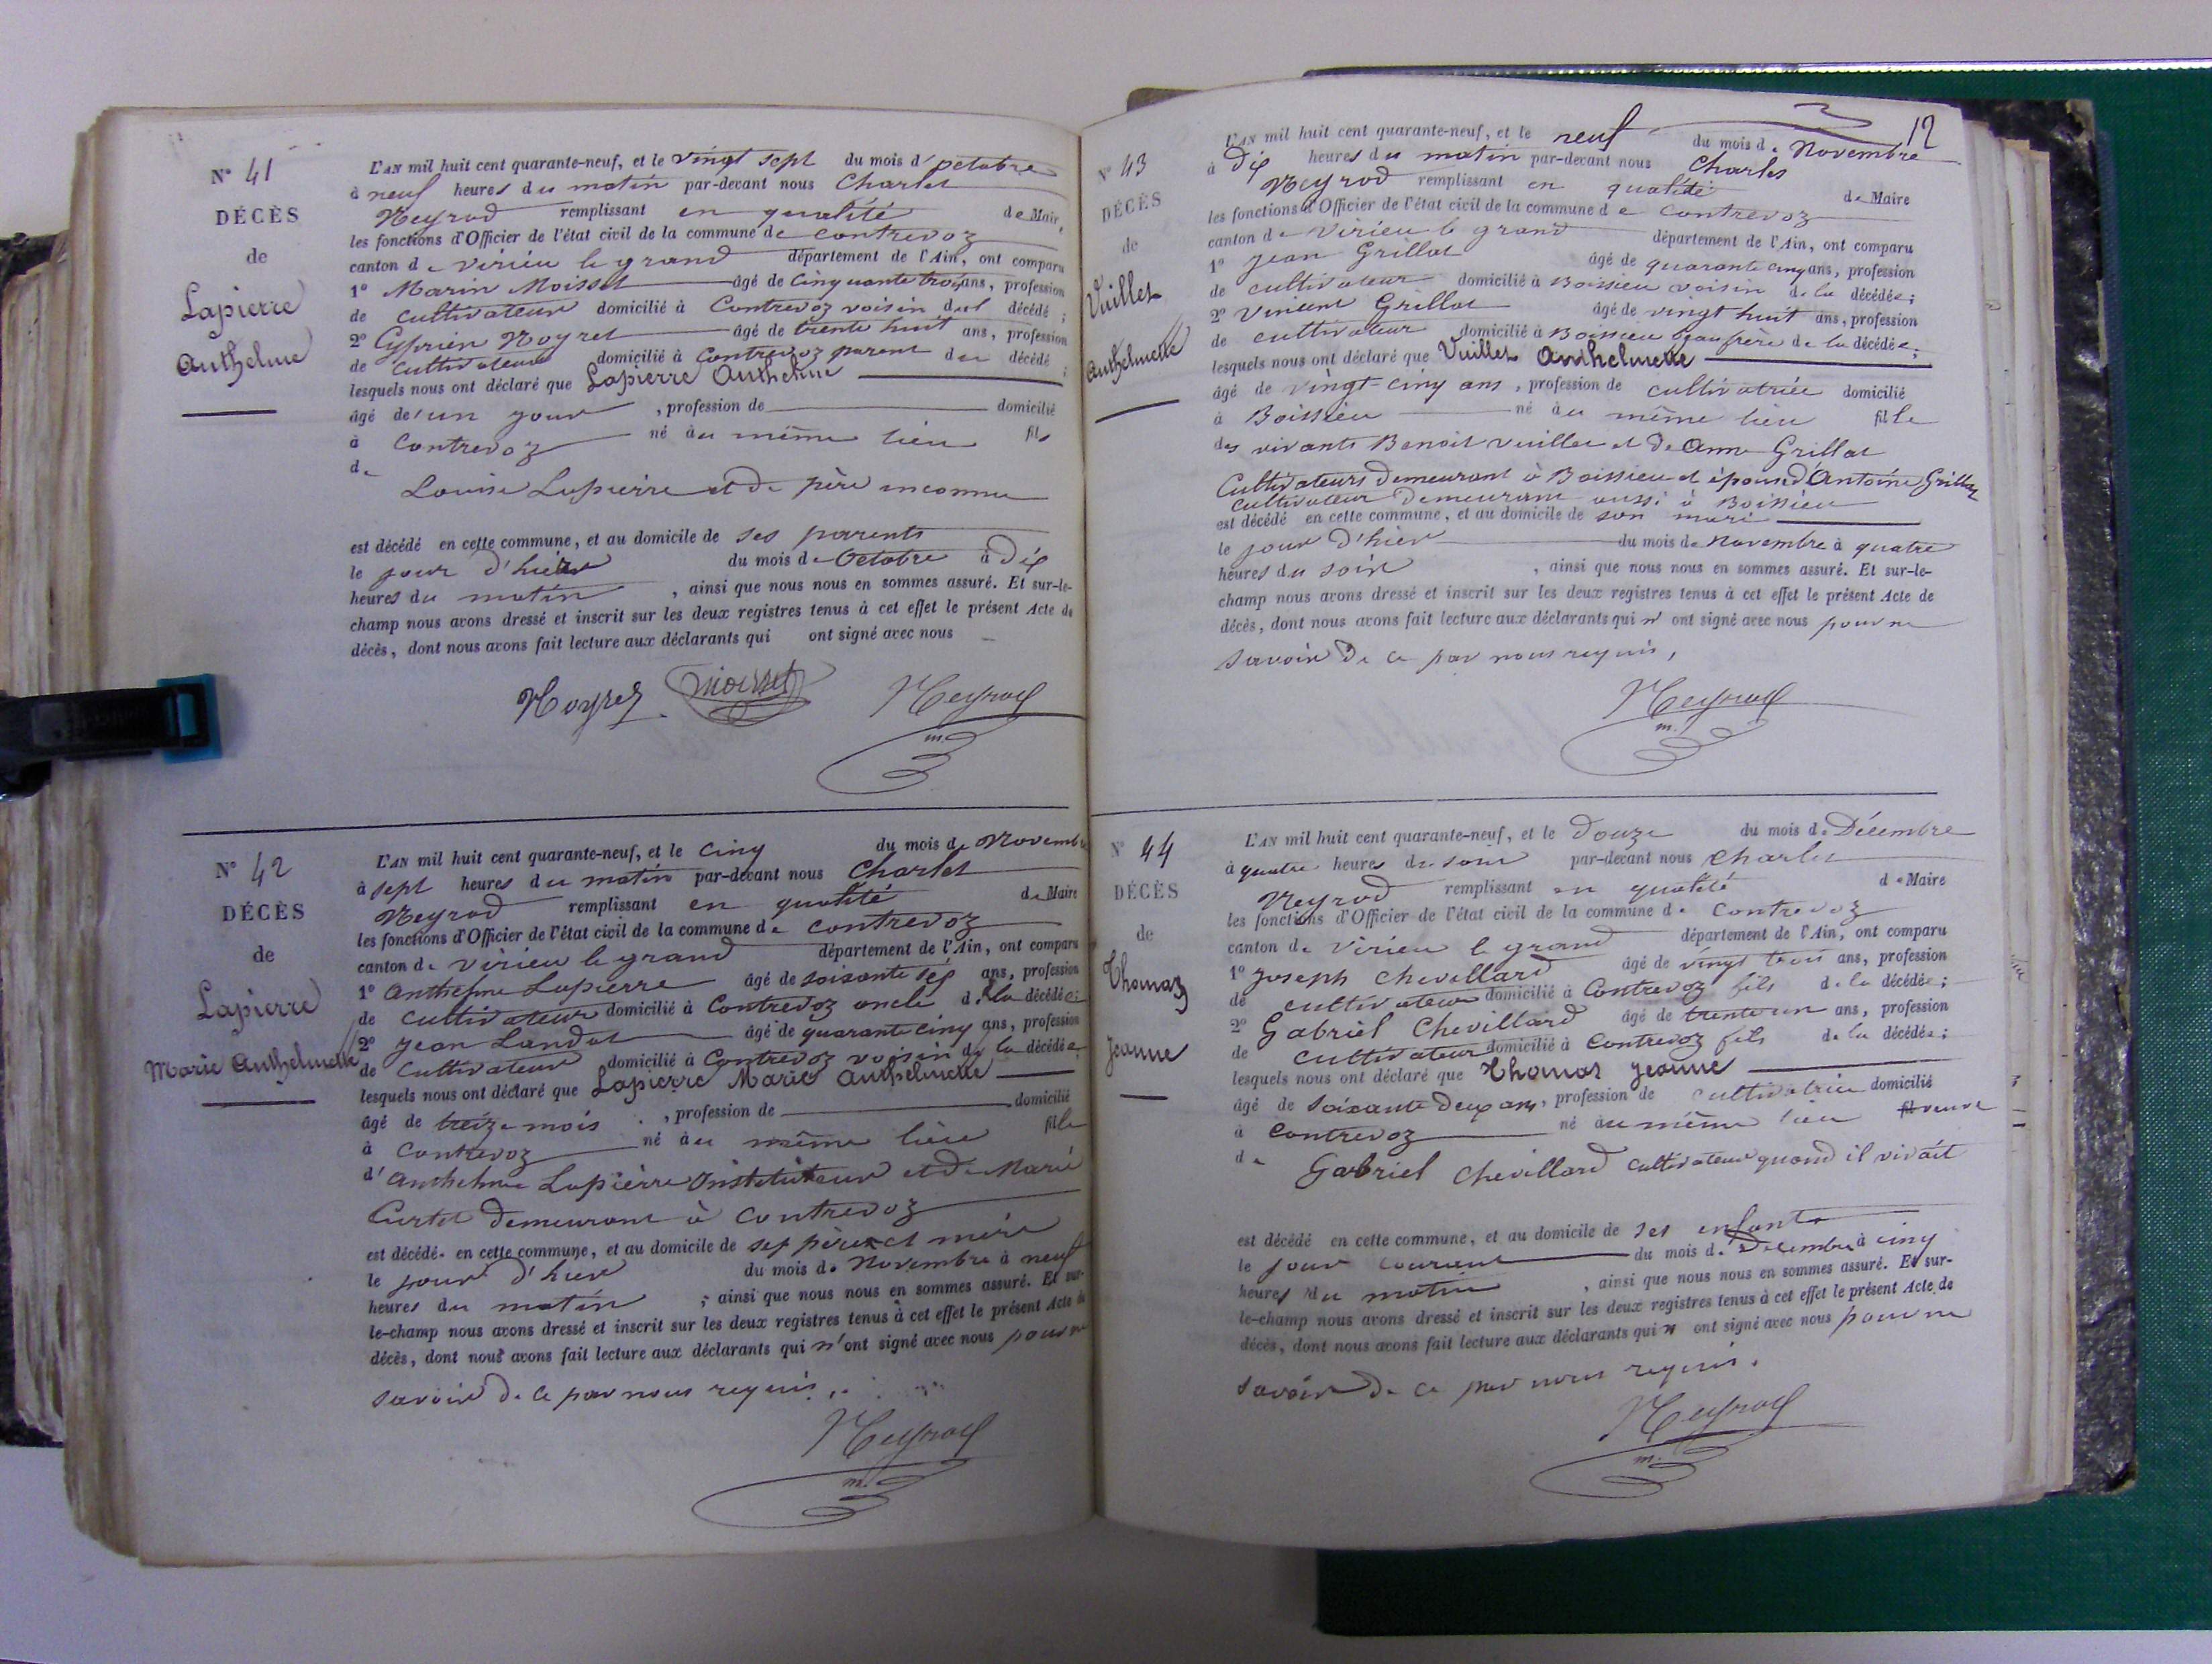 N° 41
DÉCÈS
de
Lapierre
Anthelme
L'AN mil huit cent quarante-neuf, et le vingt sept du mois d'octobre
à neuf heures du matin par-devant nous Charles
Neyrod remplissant en qualité de Maire
les fonctions d'Officier de l'état civil de la commune de Contrevoz
canton de virieu le grand département de l'Ain, ont comparu
1° Marin Moisset âgé de cinquante trois ans, profession
de cultivateur domicilié à Contrevoz voisin du décédé ;
2° Cyprien Noyret âgé de trente huit ans, profession
de cultivateur domicilié à Contrevoz parent du décédé ;
lesquels nous ont déclaré que Lapierre Anthelme
âgé de'un jour , profession de domicilié
à Contrevoz né au même lieu fils
de
Louise Lapierre et de père inconnu
est décédé en cette commune, et au domicile de ses parents
le jour d'hier du mois de Octobre à dix
heures du matin , ainsi que nous nous en sommes assuré. Et sur-le-
champ nous avons dressé et inscrit sur les deux registres tenus à cet effet le présent Acte de
décès, dont nous avons fait lecture aux déclarants qui ont signé avec nous
Noyret Moisset Neyrod
m.
N° 42
DÉCÈS
de
Lapierre
Marie Anthelmette
L'AN mil huit cent quarante-neuf, et le cinq du mois de Novembre
à sept heures du matin par-devant nous Charles
Neyrod remplissant en qualité de Maire
les fonctions d'Officier de l'état civil de la commune de Contrevoz
canton de virieu le grand département de l'Ain, ont comparu
1° Anthelme Lapierre âgé de soixante six ans, profession
de cultivateur domicilié à Contrevoz oncle de la décédée;
2° Jean Landot âgé de quarante cinq ans, profession
de cultivateur domicilié à Contrevoz voisin de la décédée
lesquels nous ont déclaré que Lapierre Marie Anthelmette
âgé de treize mois , profession de domicilié
à Contrevoz né au même lieu fille
d'Anthelme Lapierre Instituteur et de Marie
Curtet demeurant à Contrevoz
est décédé en cette commune, et au domicile de ses père et mère
le jour d'hier du mois de Novembre à neuf
heures du matin ; ainsi que nous nous en sommes assuré. Et sur-
le-champ nous avons dressé et inscrit sur les deux registres tenus à cet effet le présent Acte de
décès, dont nous avons fait lecture aux déclarants qui n'ont signé avec nous pour ne
savoir de ce par nous requis.
Neyrod
m.
12
N° 43
DÉCÈS
de
Vuillet
Anthelmette
L'AN mil huit cent quarante-neuf, et le neuf du mois de Novembre
à dix heures du matin par-devant nous Charles
Neyrod remplissant en qualité de Maire
les fonctions d'Officier de l'état civil de la commune de Contrevoz
canton de virieu le grand département de l'Ain, ont comparu
1° Jean Grillat âgé de quarante cinq ans, profession
de cultivateur domicilié à Boissieu voisin de la décédée;
2° Vincent Grillat âgé de vingt huit ans, profession
de cultivateur domicilié à Boissieu beau frère de la décédée;
lesquels nous ont déclaré que Vuillet Anthelmette
âgé de vingt-cinq ans, profession de cultivatrice domicilié
à Boissieu né au même lieu fille
des vivants Benoit vuillet et de Anne Grillat
Cultivateurs demeurant à Boissieu et épouse d'Antoine Grillat
cultivateur demeurant aussi à Boissieu
est décédé en cette commune, et au domicile de son mari
le jour d'hier du mois de Novembre à quatre
heures du soir , ainsi que nous nous en sommes assuré. Et sur-le-
champ nous avons dressé et inscrit sur les deux registres tenus à cet effet le présent Acte de
décès, dont nous avons fait lecture aux déclarants qui n' ont signé avec nous pour ne
savoir de ce par nous requis,
Neyrod
m.
N° 44
DÉCÈS
de
Thomas
Jeanne
L'AN mil huit cent quarante-neuf, et le douze du mois de Décembre
à quatre heures du soir par-devant nous Charles
Neyrod remplissant en qualité de Maire
les fonctions d'Officier de l'état civil de la commune de Contrevoz
canton de virieu le grand département de l'Ain, ont comparu
1° Joseph Chevillard âgé de vingt trois ans, profession
de cultivateur domicilié à Contrevoz fils de la décédée;
2° Gabriel Chevillard âgé de trente un ans, profession
de cultivateur domicilié à Contrevoz fils de la décédée;
lesquels nous ont déclaré que Thomas Jeanne
âgé de soixante deux ans, profession de cultivatrice domicilié
à Contrevoz né au même lieu fil veuve
de Gabriel Chevillard cultivateur quand il vivait
est décédé en cette commune, et au domicile de ses enfants
le jour courant du mois de Décembre à cinq
heures du matin , ainsi que nous nous en sommes assuré. Et sur-
le-champ nous avons dressé et inscrit sur les deux registres tenus à cet effet le présent Acte de
décès, dont nous avons fait lecture aux déclarants qui n' ont signé avec nous pour ne
savoir de ce par nous requis.
Neyrod
m.